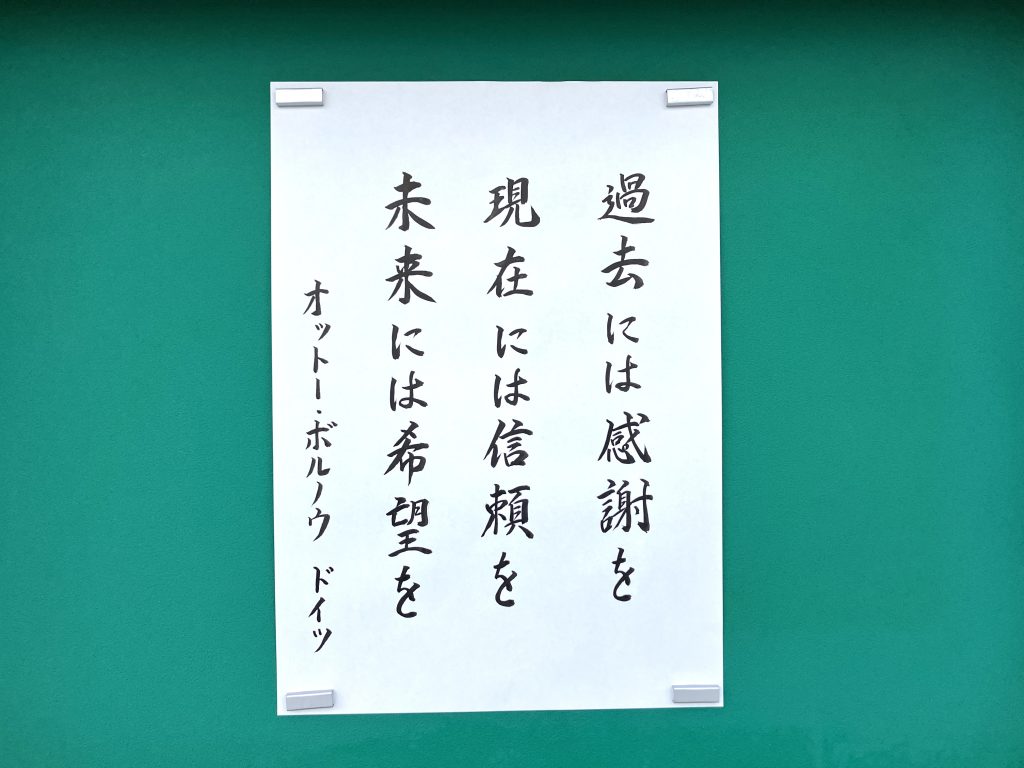 過去には感謝を
現在には信頼を
未来には希望を
オットー・ボルノウ ドイツ